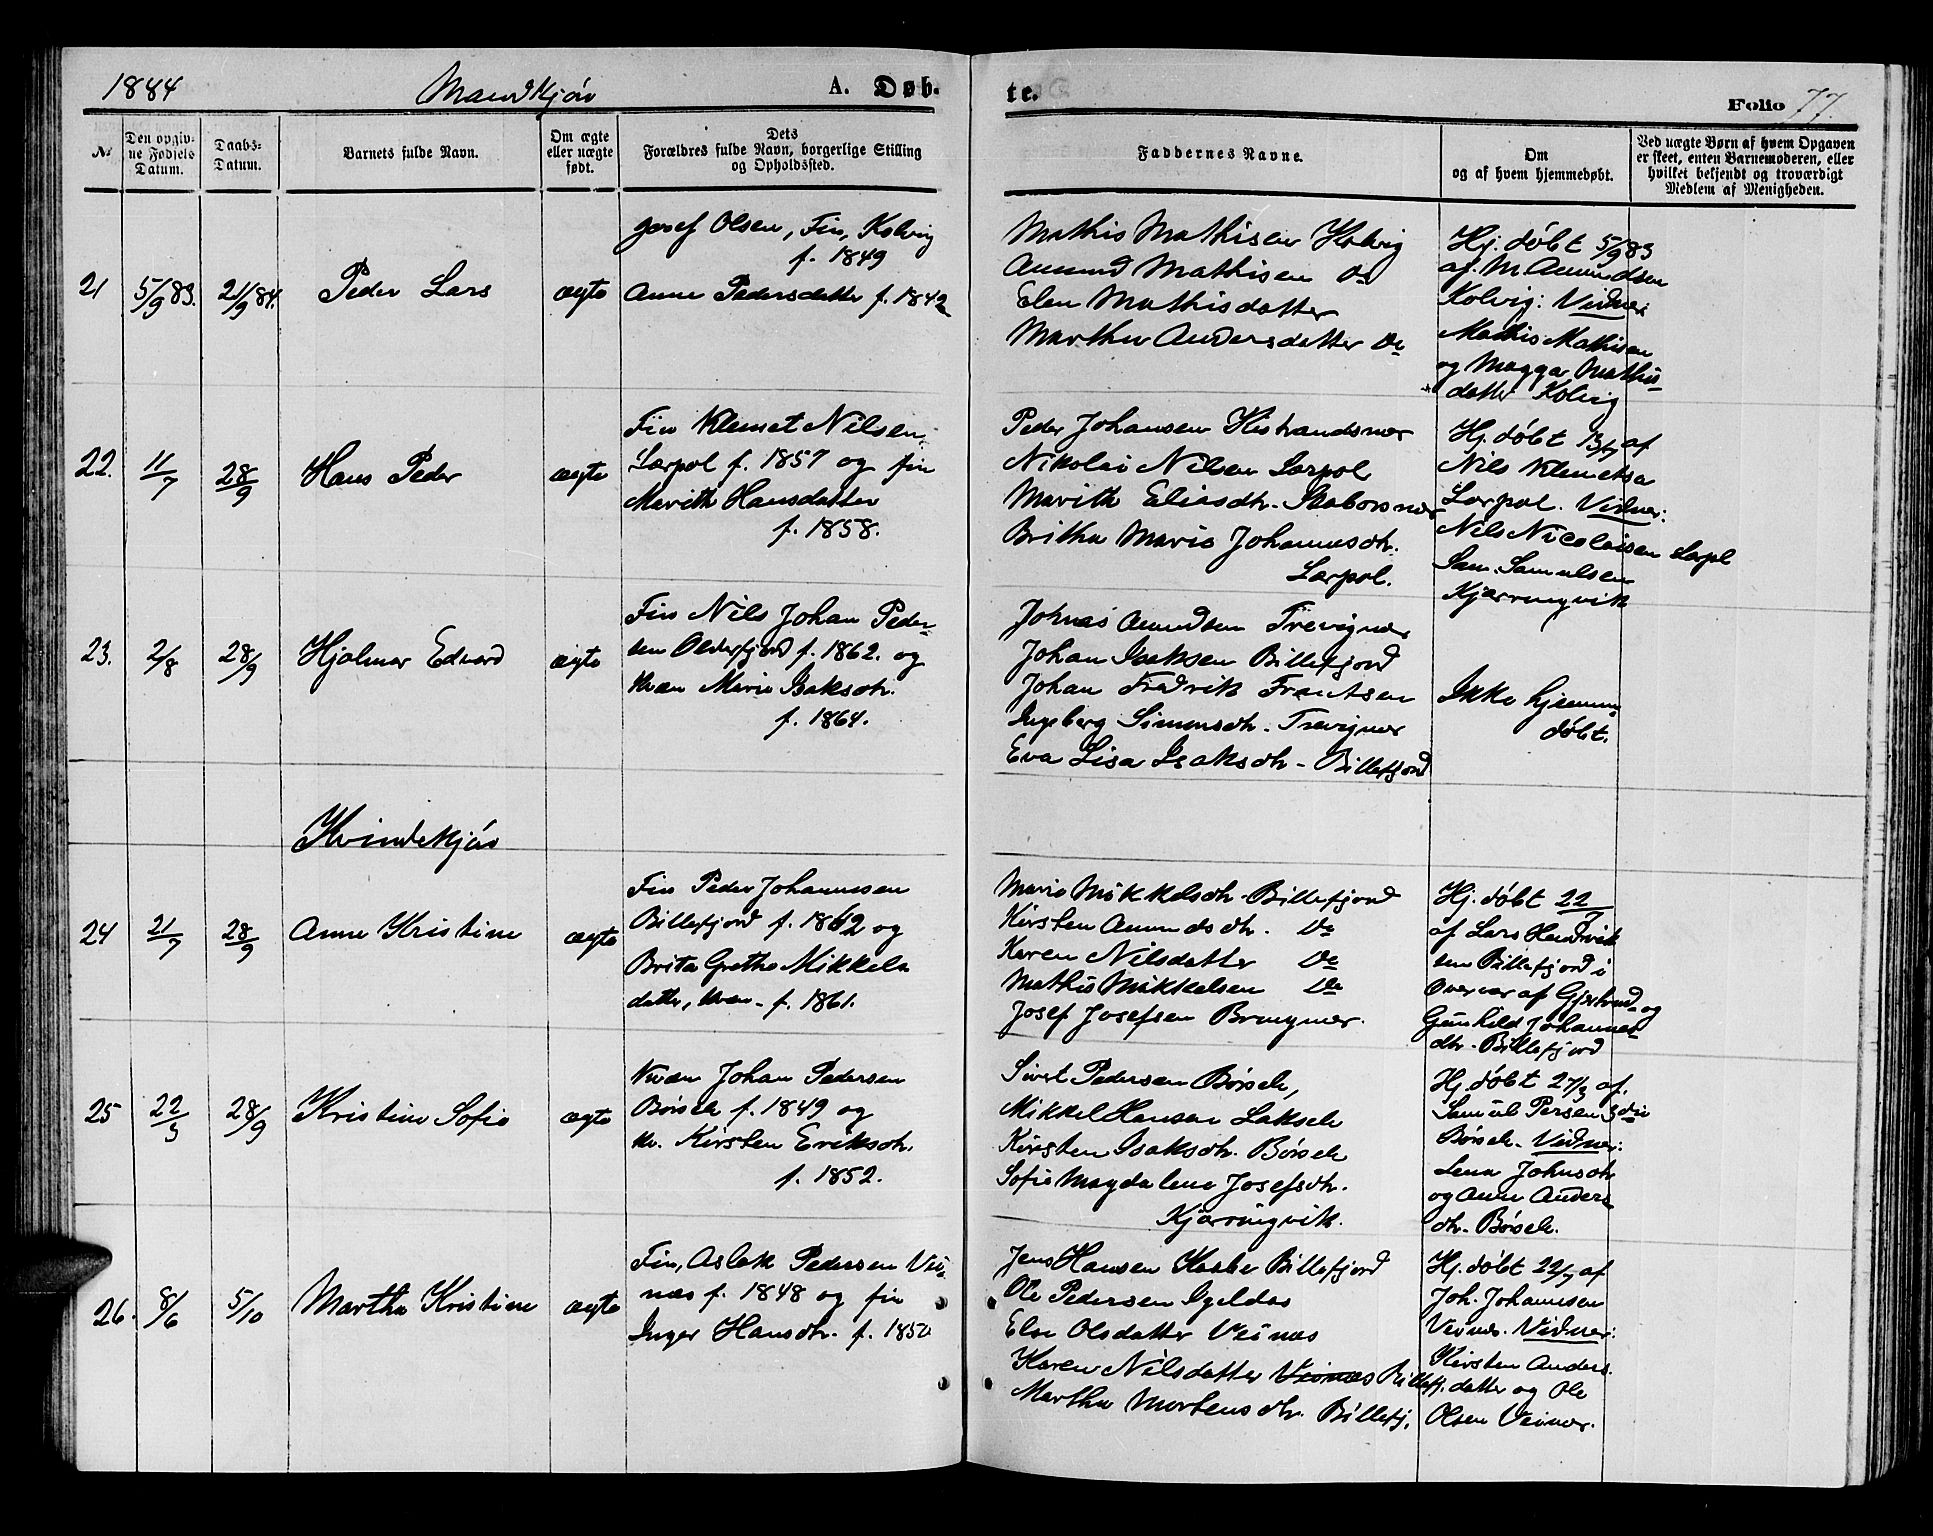 1884 Mandkjøn A. Døb-
te. Folio 77.
No
Den opgiv-
ne Fødsels
Datum.
Daabs-
Datum.
Barnets fulde Navn.
Om ægte
eller uægte
født.
Dets
Forældres fulde Navn, borgerlige Stilling
og Opholdssted.
Faddernes Navne.
Om
og af hvem hjemmedøbt.
Ved uægte Børn af hvem Opgaven
er skeet, enten Barnemoderen, eller
hvilket bekjendt og troværdigt
Medlem af Menigheden.
21 5/9 83. 21/9 84. Peder Lars ægte
Josef Olsen, Fin, Kolvig
f. 1849
Anne Pedersdatter f. 1842
Mathis Mathisen Kolvig
Amund Mathisen Do
Elen Mathisdatter
Martha Andersdatter Do
Hj. døbt 5/9 83
af M. Amundsen
Kolvig: Vidner:
Mathis Mathisen
og Maggar Mathis-
datter Kolvig
22. 11/7 28/9 Hans Peder ægte
Fin Klemet Nilsen
Lærpol f. 1857 og fin
Marith Hansdatter
f. 1858.
Peder Johansen Kistrandsnæs
Nikolai Nilsen Lærpol
Marith Eliasdtr. Skaborsnæs
Britha Maria Johannesdtr.
Lærpol.
Hj. døbt 13/7 af
Nils Klemetsen
Lærpol. Vidner:
Nils Nicolaisen Lærpl
Sam. Samulsen
Kjærringvik
23. 2/8 28/9 Hjalmar Edvard ægte
Fin Nils Johan Peder-
sen Olderfjord f. 1862. og
Kvæn Marie Isaksdtr.
f. 1864.
Johnas Amundsen Trevignæs
Johan Isaksen Billefjord
Johan Fredrik Frantsen
Ingeborg Simonsdtr. Trevignæs
Eva Lisa Isaksdtr - Billefjord
Ikke hjemme-
døbt.
Kvindekjøn
24 21/7 28/9 Anne Kristine ægte
Fin Peder Johannesen
Billefjord f. 1862 og
Brita Grethe Mikkels
datter, Kvæn - f. 1861.
Marie Mikkelsdtr - Billefjord
Kirsten Amundsdtr. Do
Karen Nilsdatter Do
Mathis Mikkelsen Do
Josef Josefsen Brugnæs.
Hj. døbt 22/7
af Lars Hendrik
sen Billefjord i
Overvær af Gjertrud og
Gunhild Johannes-
dtr - Billefjord
25 22/3 28/9 Kristine Sofie ægte
Kvæn Johan Pedersen
Børsele f. 1849 og
kv. Kirsten Eriksdtr.
f. 1852.
Sivert Pedersen Børsele,
Mikkel Hansen Laksele
Kirsten Isaksdtr. Børsele
Sofie Magdalene Josefsdtr.
Kjærringvik.
Hj. døbt 27/3 af.
Samuel Persen
Børsele - Vidner:
Lena Johnsdtr
og Anne Anders
dtr. Børsele.
26. 8/6 5/10 Martha Kristine ægte
Fin, Aslak Pedersen Vei-
næs f. 1848 og fin
Inger Hansdtr. f. 1850
Jens Hansen Kaabe Billefjord
Ole Pedersen Igeldas
Else Olsdatter Veinæs
Karen Nilsdatter Veinæs Billefj.
Martha Mortensdtr. Billefj.
Hj. døbt 22/7 af
Joh. Johannesen
Veinæs. Vidner:
Kirsten Anders.
datter og Ole
Olsen Veinæs.